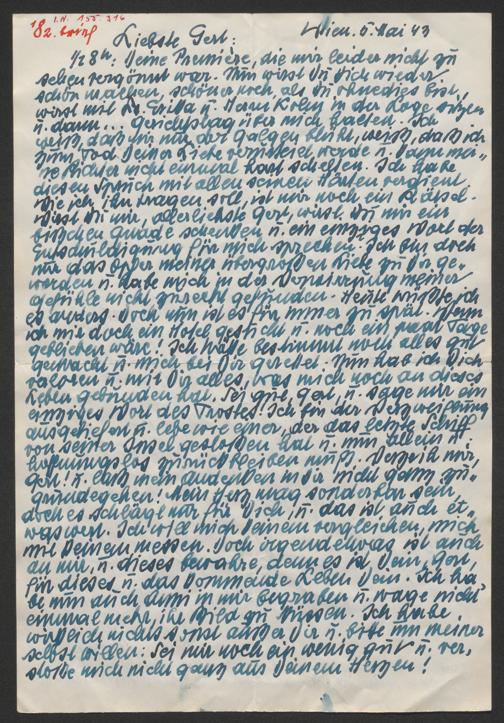 I.N. 155.216
182. Brief
Wien, 5. Mai 43
Liebste Gert:
1/2 8h: Deine Première, die mir leider nicht zu
sehen vergönnt war. Nun wirst Du Dich wieder
schön machen, schöner noch, als Du ohnedies bist,
wirst mit u. Herrn Kolm in der Loge sitzen
u. dann... Gerichtstag über mich halten. Ich
weiß, daß mir nur der Galgen bleibt, weiß, daß ich
zum Tod Deiner Liebe verurteilt werde u. kann mei-
ne Richter nicht einmal hart schelten. Ich habe
diesen Spruch mit allen seinen Härten verdient.
Wie ich ihn tragen soll, ist mir noch ein Rätsel.
Wirst Du mir, allerliebste Gert, wirst Du mir ein
bißchen Gnade schenken u. ein einziges Wort der
Entschuldigung für mich sprechen. Ich bin doch
nur das Opfer meiner übergroßen Liebe zu Dir ge-
worden u. habe mich in der Verwirrung meiner
Gefühle nicht zurecht gefunden. Heute wüßte ich
es anders. Doch nun ist es für immer zu spät. Wenn
ich mir doch ein Hotel gesucht u. noch ein paar Tage
geblieben wäre! Ich hätte bestimmt noch alles gut
gemacht u. mich bei Dir gerettet. Nun hab ich Dich
verloren u. mit Dir alles, was mich noch an dieses
Leben gebunden hat. Sei gut, Gert, u. sage mir ein
einziges Wort des Trostes! Ich bin der Verzweiflung
ausgeliefert u. lebe wie einer, der das letzte Schiff
von seiner Insel gestoßen hat u. nun allein u.
hoffnungslos zurückbleiben muß. Verzeih mir,
Gert! u. laß mein Andenken in Dir nicht ganz zu-
grundegehen! Mein Herz mag sonderbar sein,
doch es schlägt nur für Dich, u. das ist auch et-
was wert. Ich will mich Deinem vergleichen, mich
mit Deinem messen. Doch irgendetwas ist auch
an mir, u. dieses bewahre, denn es ist Dein, Gert,
für dieses u. das kommende Leben Dein. Ich ha-
be nun auch in mir begraben u. wage nicht
einmal mehr, ihr Bild zu küssen. Ich habe
wirklich nichts sonst außer Dir u. bitte um meiner
selbst willen: Sei mir noch ein wenig gut u. ver-
stoße mich nicht ganz aus Deinem Herzen!